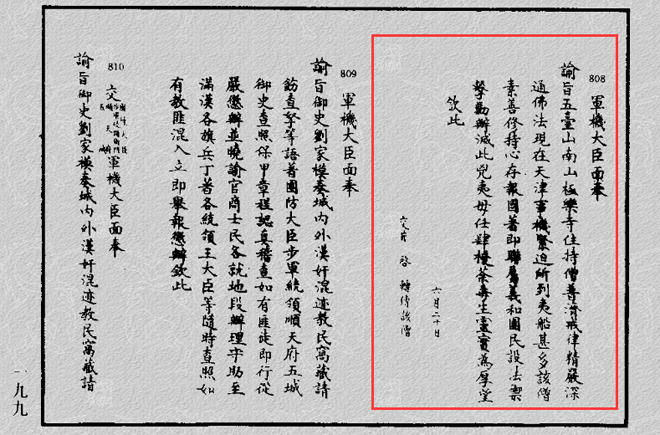 808
軍機大臣面奉
諭旨五臺山南山極樂寺住持僧普濟戒律精嚴深
通佛法現在天津事機緊迫所到夷船甚多該僧
素善修持心存報國著即聯屬義和團民設法禦
擊剿辦滅此兇夷毋任肆擾荼毒生靈實為厚望
欽此
六月二十日
交片 啓 轉傳該僧
809
軍機大臣面奉
諭旨御史劉家模奏城內外漢奸混迹教民寓藏請
飭查拏等語著團防大臣步軍統領順天府五城
御史查照保甲章程認真稽查如有匪徒即行從
嚴懲辦並曉諭官商士民各就地段辦理守助至
滿漢各旗兵丁著各統領王大臣等隨時查照如
有教匪混入立即舉報懲辦欽此
810
交
軍機大臣面奉
諭旨御史劉家模奏城內外漢奸混迹教民寓藏請
一九九